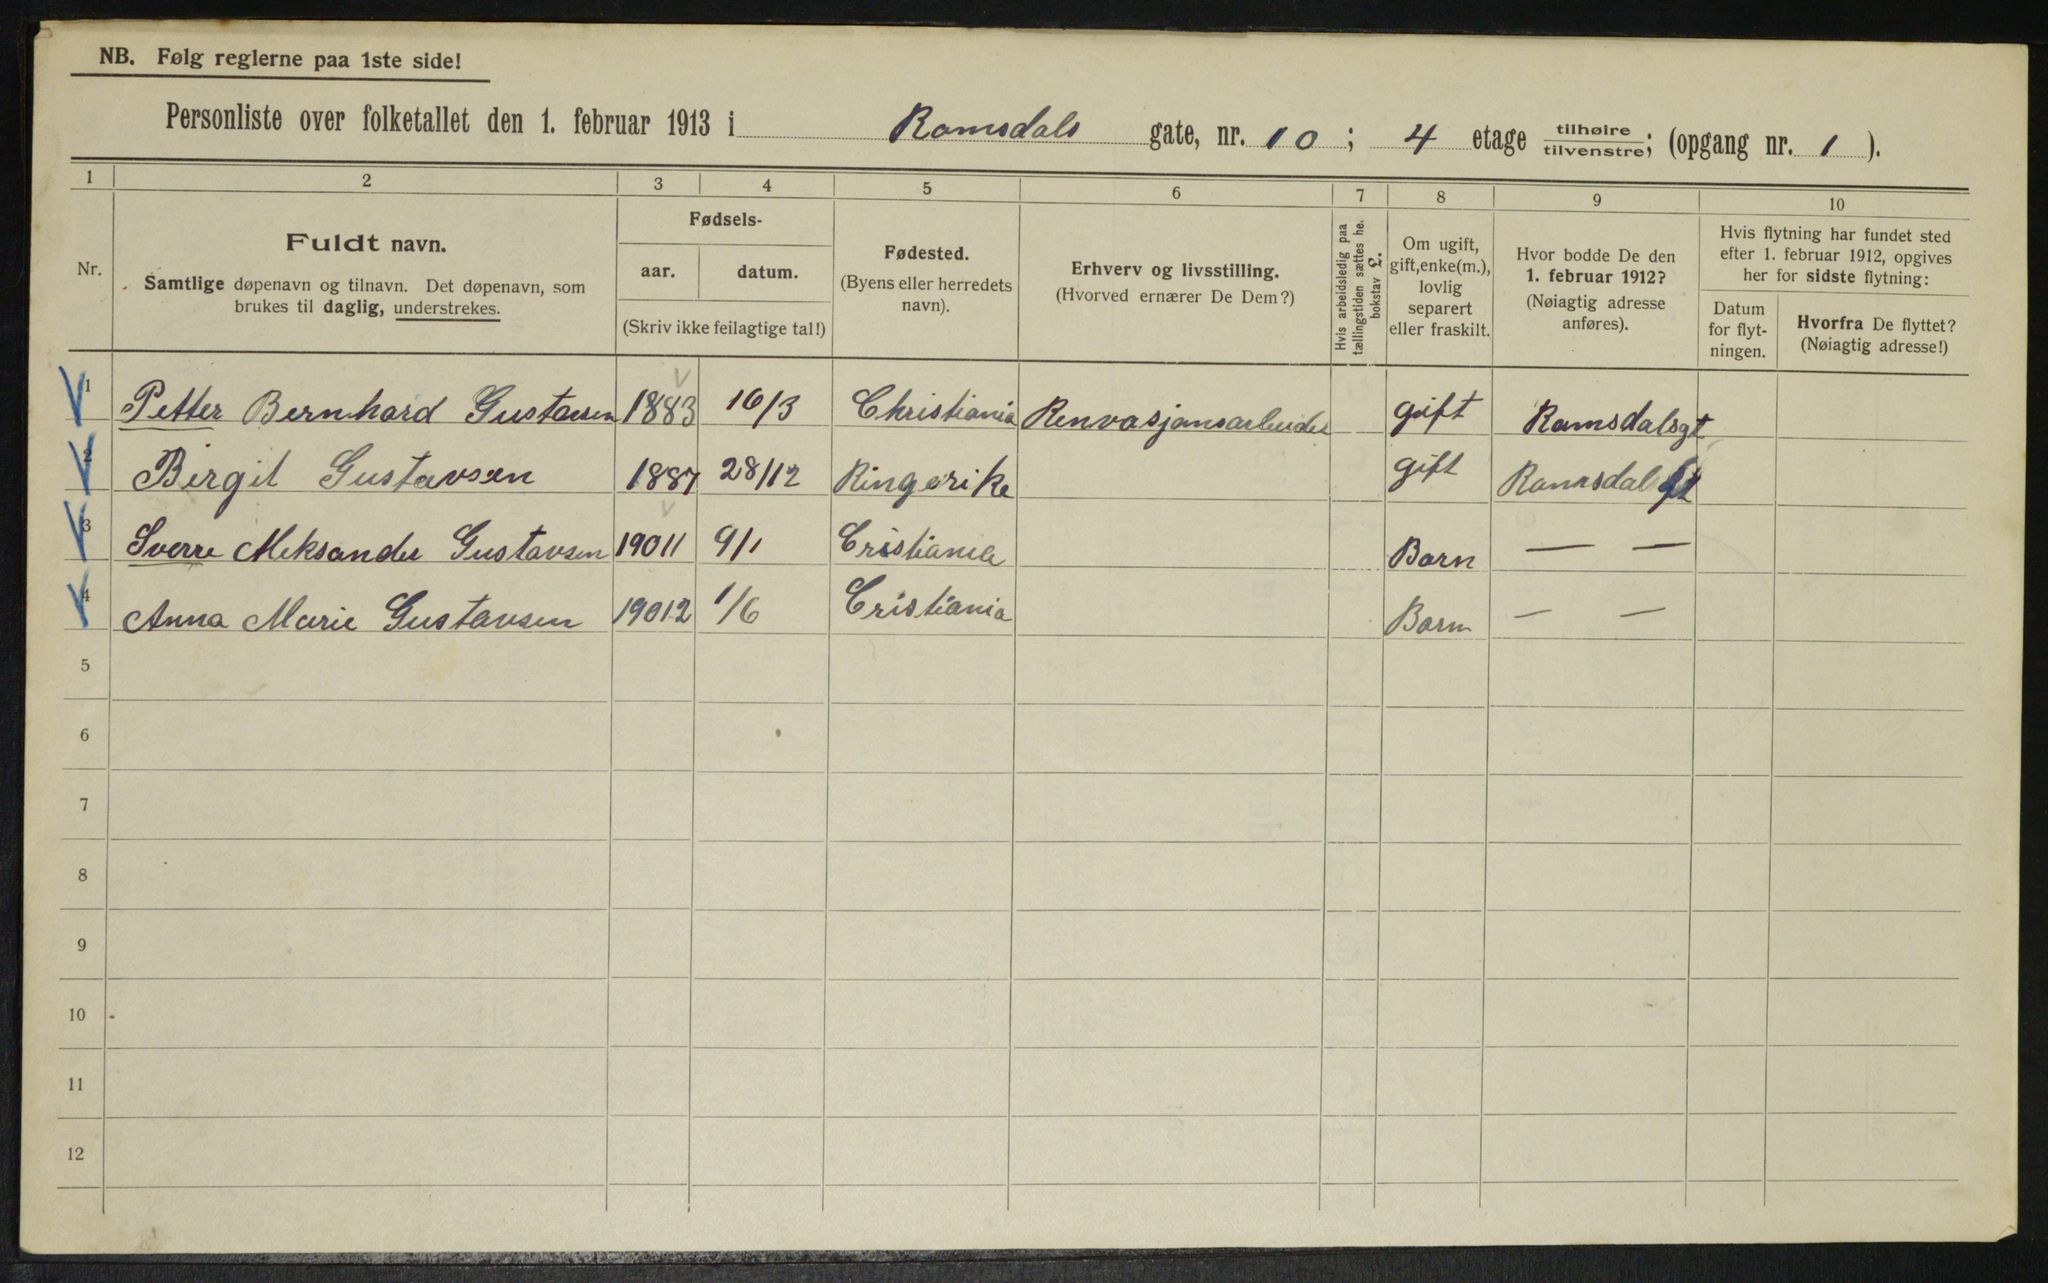 NB. Følg reglerne paa 1ste side!
Personliste over folketallet den 1. februar 1913 i Romsdals gate, nr. 10; 4 etage tilhøire/tilvenstre; (opgang nr. 1).
1 2 3 4 5 6 7 8 9 10
Nr.
Fuldt navn.
Samtlige døpenavn og tilnavn. Det døpenavn, som
brukes til daglig, understrekes.
Fødsels-
aar. datum.
(Skriv ikke feilagtige tal!)
Fødested.
(Byens eller herredets
navn).
Erhverv og livsstilling.
(Hvorved ernærer De Dem?)
Hvis arbeidsledig paa
tællingstiden sættes he.
bokstav L.
Om ugift,
gift, enke(m.),
lovlig
separert
eller fraskilt.
Hvor bodde De den
1. februar 1912?
(Nøiagtig adresse
anføres).
Hvis flytning har fundet sted
efter 1. februar 1912, opgives
her for sidste flytning:
Datum
for flyt-
ningen.
Hvorfra De flyttet?
(Nøiagtig adresse!)
1 Petter Bernhard Gustavsen 1883 16/3 Christiania Renvasjonsarbeider gift Romsdalsgt
2 Birgit Gustavsen 1887 28/12 Ringerike gift Romsdalsgt
3 Sverre Aleksander Gustavsen 19011 9/1 Cristiania Barn — —
4 Anna Marie Gustavsen 19012 1/6 Cristiania Barn — —
5
6
7
8
9
10
11
12